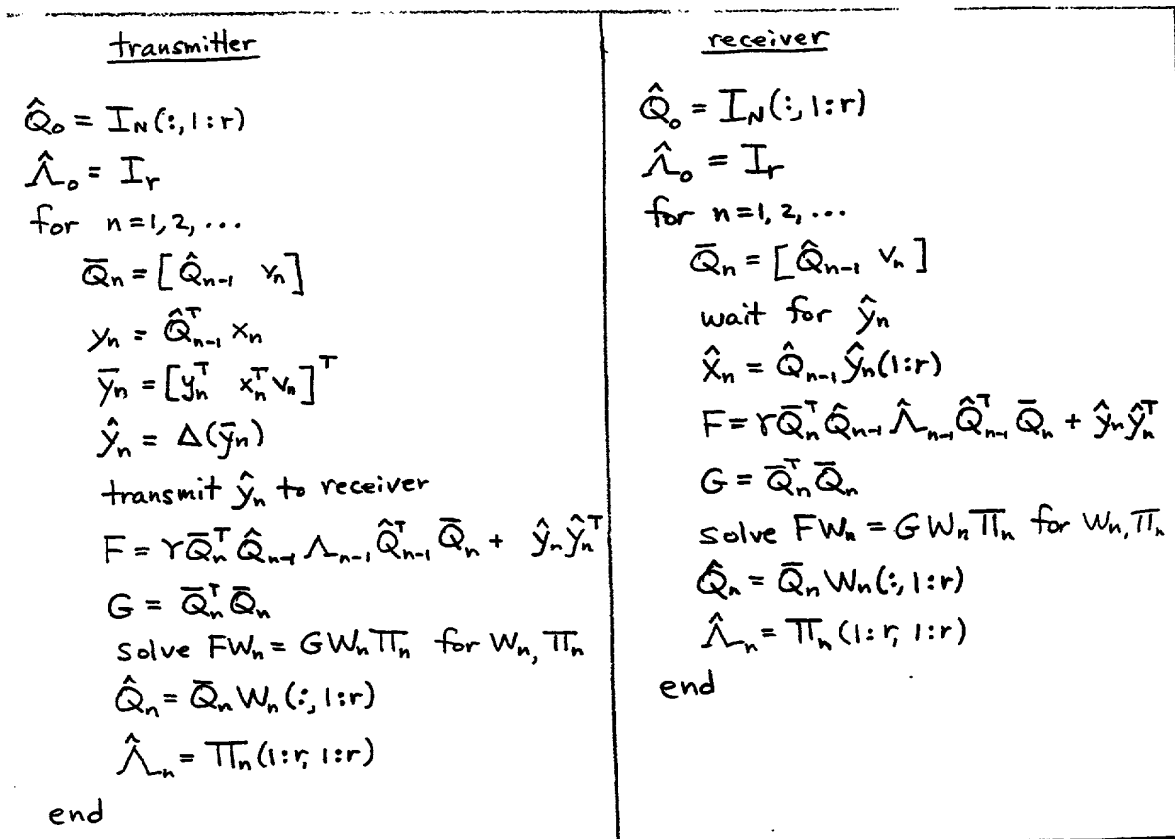 transmitter
Q̂₀ = I_N(:, 1:r)
Λ̂₀ = I_r
for n=1, 2, ...
Q̄ₙ = [Q̂ₙ₋₁ vₙ]
yₙ = Q̂ₙ₋₁ᵀ xₙ
ȳₙ = [yₙᵀ xₙᵀvₙ]ᵀ
ŷₙ = Δ(ȳₙ)
transmit ŷₙ to receiver
F = γQ̄ₙᵀ Q̂ₙ₋₁ Λₙ₋₁ Q̂ₙ₋₁ᵀ Q̄ₙ + ŷₙŷₙᵀ
G = Q̄ₙᵀ Q̄ₙ
solve FWₙ = GWₙΠₙ for Wₙ, Πₙ
Q̂ₙ = Q̄ₙ Wₙ(:, 1:r)
Λ̂ₙ = Πₙ(1:r, 1:r)
end
receiver
Q̂₀ = I_N(:, 1:r)
Λ̂₀ = I_r
for n=1, 2, ...
Q̄ₙ = [Q̂ₙ₋₁ vₙ]
wait for ŷₙ
x̂ₙ = Q̂ₙ₋₁ ŷₙ(1:r)
F = γQ̄ₙᵀ Q̂ₙ₋₁ Λ̂ₙ₋₁ Q̂ₙ₋₁ᵀ Q̄ₙ + ŷₙŷₙᵀ
G = Q̄ₙᵀ Q̄ₙ
solve FWₙ = GWₙΠₙ for Wₙ, Πₙ
Q̂ₙ = Q̄ₙ Wₙ(:, 1:r)
Λ̂ₙ = Πₙ(1:r, 1:r)
end